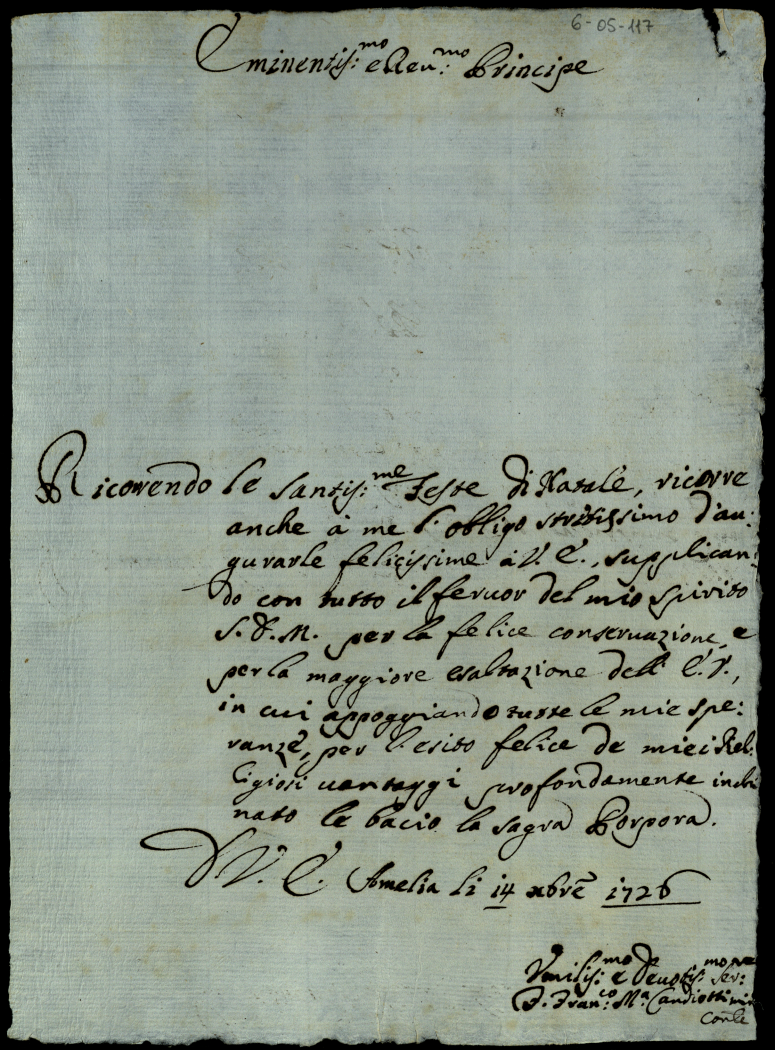 6-05-117
Eminentis:mo e Reu:mo Principe
Ricorrendo le Santis:me Feste di Natale, ricorre
anche à me l'obligo strettissimo d'au:
gurarle felicissime à V. E., supplican:
do con tutto il feruor del mio spirito
S. D. M. per la felice conseruazione, e
per la maggiore esaltazione dell' E. V.,
in cui appoggiando tutte le mie spe:
ranze, per l'esito felice de miei Rel:
ligiosi uantaggi profondamente inchi
nato le bacio la sagra Porpora.
D V. E. Amelia li 14 xbre 1726
Vmilis:mo e Deuotis:mo Ser:re
F. Fran:co M.a Candiotti min
conle